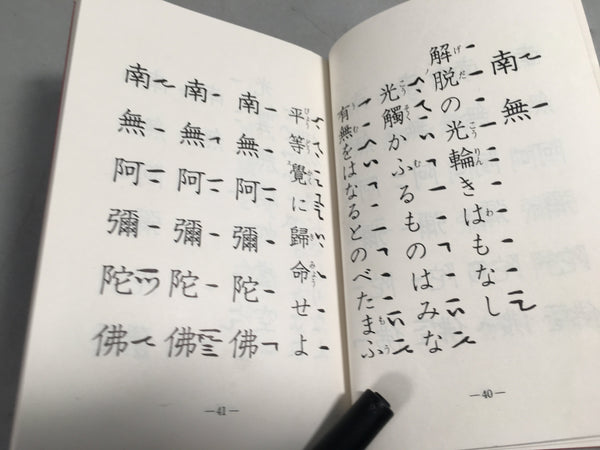 南無
解脱の光輪きはもなし
光觸かふるものはみな
有無をはなるとのべたまふ
—40—
平等覺に歸命せよ
南無阿彌陀佛
南無阿彌陀佛
南無阿彌陀佛
—41—